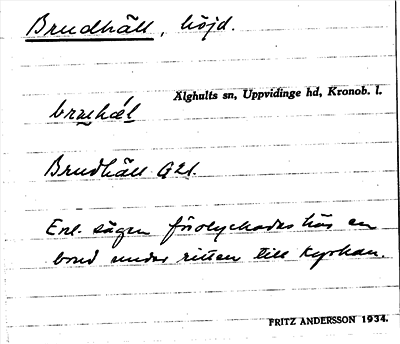 Brudhäll, höjd.
Älghults sn, Uppvidinge hd, Kronob. l.
Brudhäll G21.
Enl. sägen förolyckades här en
brud under ritten till kyrkan.
FRITZ ANDERSSON 1934.